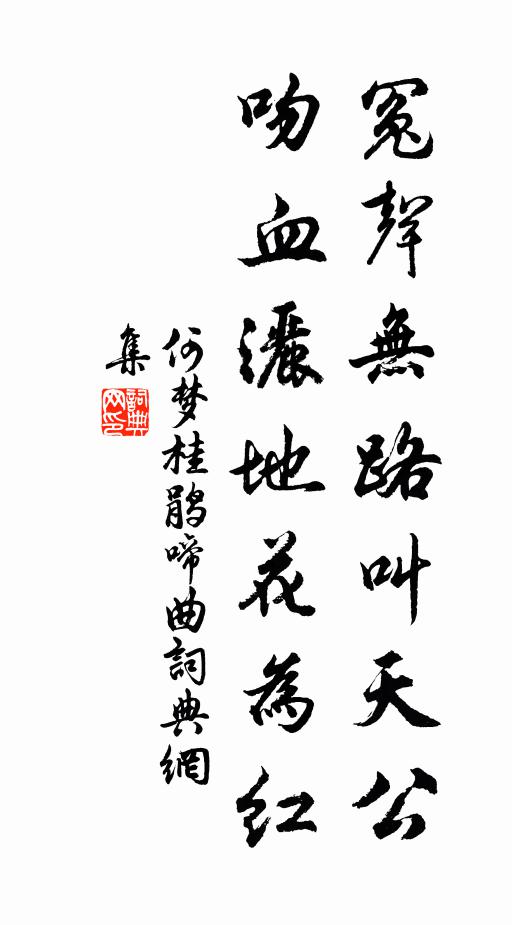 冤聲無路叫天公
吻血灑地花為红
何梦桂鹃啼曲詞典網
集
詞典
网印